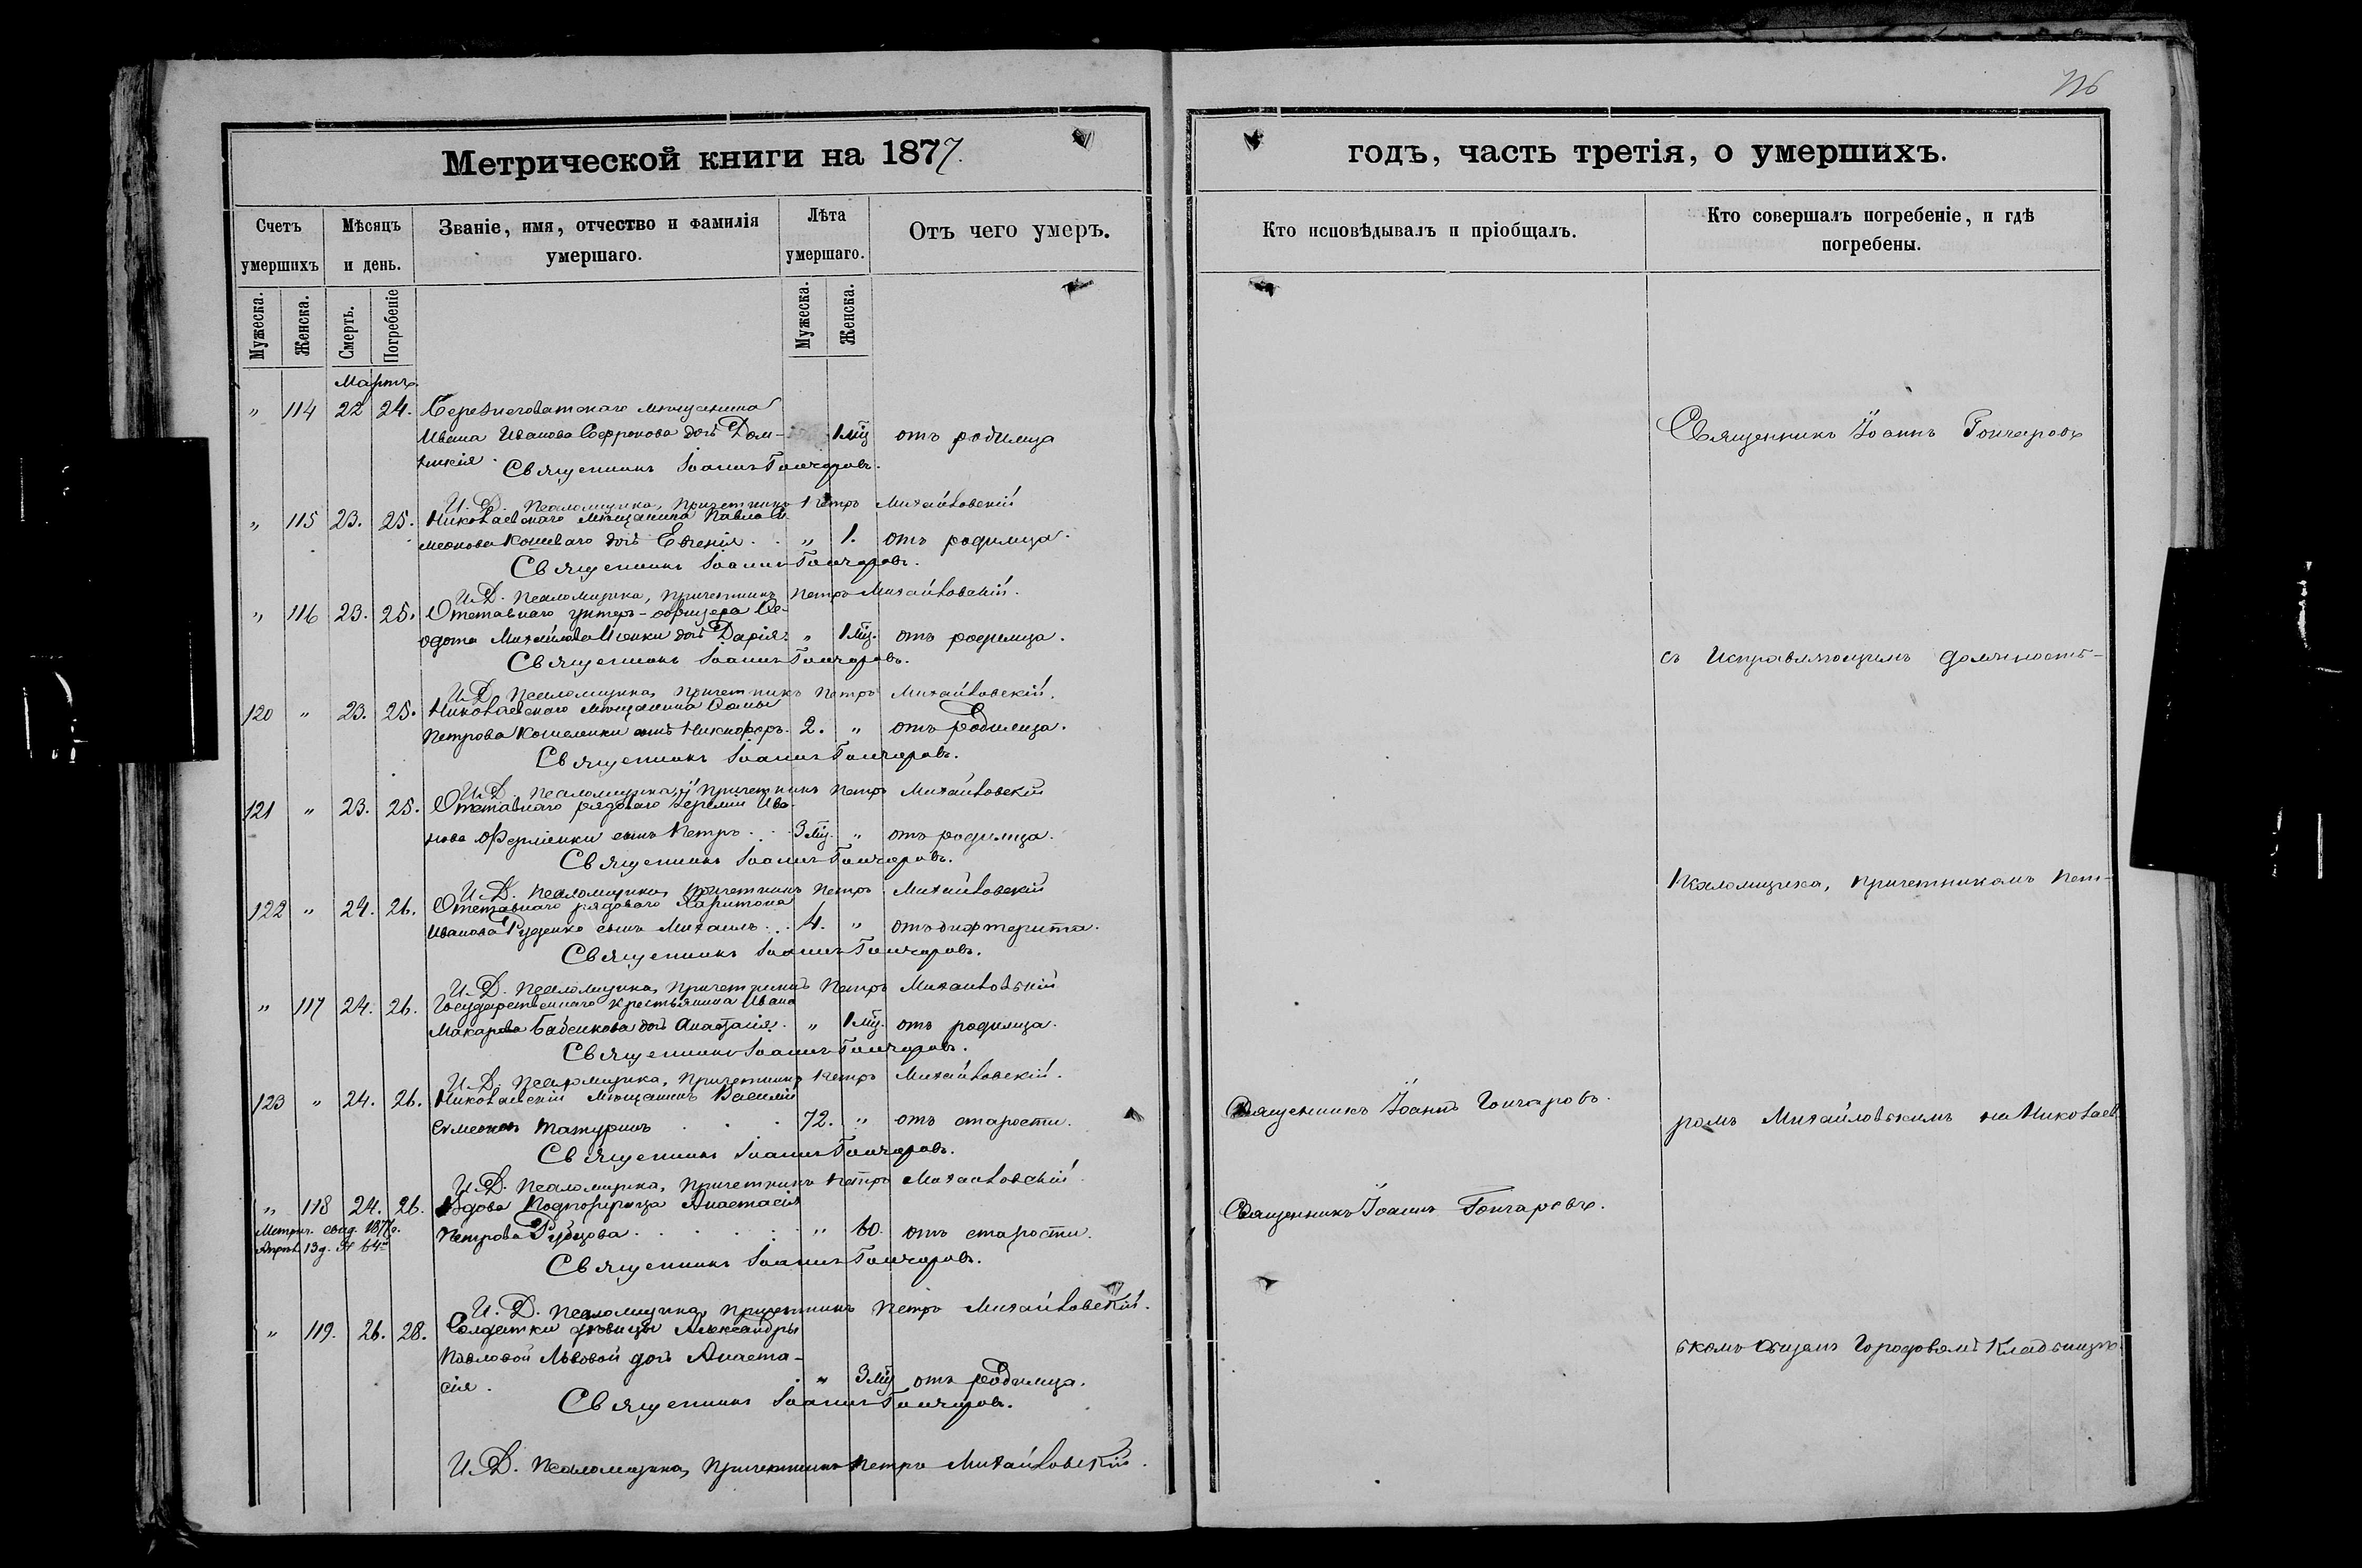 Метрической книги на 1877.
годъ, часть третія, о умершихъ.
Счетъ умершихъ
Мѣсяцъ и день.
Званіе, имя, отчество и фамилія умершаго.
Лѣта умершаго.
Отъ чего умеръ.
Кто исповѣдывалъ и пріобщалъ.
Кто совершалъ погребеніе, и гдѣ погребены.
Мужеска. Женска. Смерть. Погребеніе Мужеска. Женска.
Мартъ.
„ 114 22 24. Березнеговатскаго мѣщанина
Ивана Иванова Софронова дочь Дом- 1 мц отъ родимца
никія.
Священникъ Іоаннъ Гончаровъ.
И. Д. Псаломщика, Причетникъ Петръ Михайловскій
„ 115 23. 25. Николаевскаго мѣщанина Павла Си-
меонова Кошеваго дочь Евгенія. „ 1. отъ родимца.
Священникъ Іоаннъ Гончаровъ.
И. Д. Псаломщика, Причетникъ Петръ Михайловскій.
„ 116 23. 25. Отставнаго унтеръ-офицера Ѳе-
одота Михайлова дочь Дарія. „ 1 мц. отъ родимца.
Священникъ Іоаннъ Гончаровъ.
И. Д. Псаломщика, Причетникъ Петръ Михайловскій.
120 „ 23. 25. Николаевскаго мѣщанина
Петрова Кошеленки сынъ Никифоръ. 2. „ отъ родимца.
Священникъ Іоаннъ Гончаровъ.
И. Д. Псаломщика, Причетникъ Петръ Михайловскій
121 „ 23. 25. Отставнаго рядоваго Іереміи Ива-
нова сынъ Петръ. 3 мц. „ отъ родимца.
Священникъ Іоаннъ Гончаровъ.
И. Д. Псаломщика, Причетникъ Петръ Михайловскій
122 „ 24. 26. Отставнаго рядоваго Харитона
Иванова Руденко сынъ Михаилъ. 4. „ отъ дифтерита.
Священникъ Іоаннъ Гончаровъ.
И. Д. Псаломщика, Причетникъ Петръ Михайловскій
„ 117 24. 26. Государственнаго крестьянина Ивана
Макарова Бабенкова дочь Анастасія. „ 1 мц. отъ родимца.
Священникъ Іоаннъ Гончаровъ.
И. Д. Псаломщика, Причетникъ Петръ Михайловскій.
123 „ 24. 26. Николаевскій мѣщанинъ Василій
Симеоновъ Татуринъ 72. „ отъ старости.
Священникъ Іоаннъ Гончаровъ.
И. Д. Псаломщика, Причетникъ Петръ Михайловскій
„ 118 24. 26. Вдова Анастасія
Метрич. свид. 1877 г.
Апрѣл. 13 д. № 64
Петрова Рубцова. „ 60. отъ старости.
Священникъ Іоаннъ Гончаровъ.
И. Д. Псаломщика, Причетникъ Петръ Михайловскій.
„ 119. 26. 28. Солдатки дѣвицы Александры
Павловой Львовой дочь Анаста-
сія. „ 3 мц отъ родимца.
Священникъ Іоаннъ Гончаровъ.
И. Д. Псаломщика, Причетникъ Петръ Михайловскій.
Священникъ Іоаннъ Гончаровъ.
Священникъ Іоаннъ Гончаровъ.
Священникъ Іоаннъ Гончаровъ
съ Исправляющимъ должность-
Псаломщика, Причетникомъ Пет-
ромъ Михайловскимъ на Николаев
скомъ Общемъ Городовомъ Кладбищѣ.